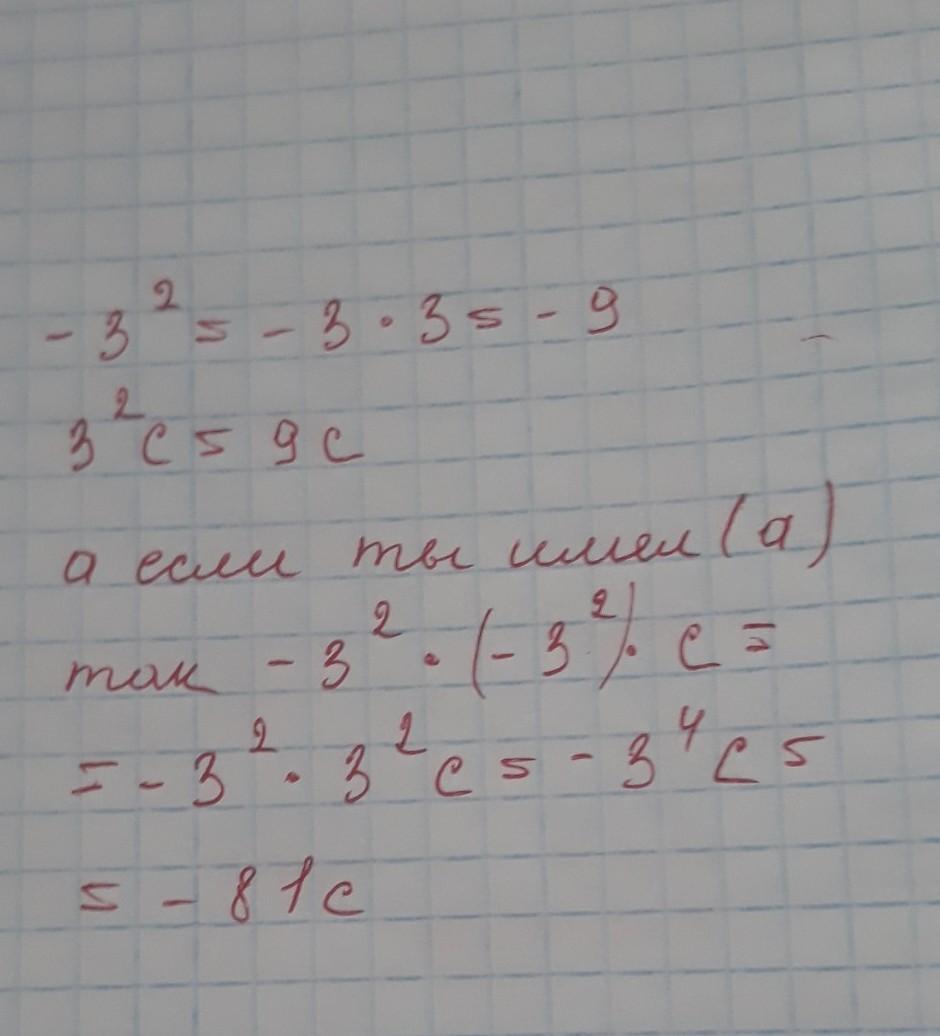 -3² = -3 · 3 = -9
3²c = 9c
а если ты имел (а)
так -3² · (-3²) · c =
= -3² · 3²c = -3⁴c =
= -81c